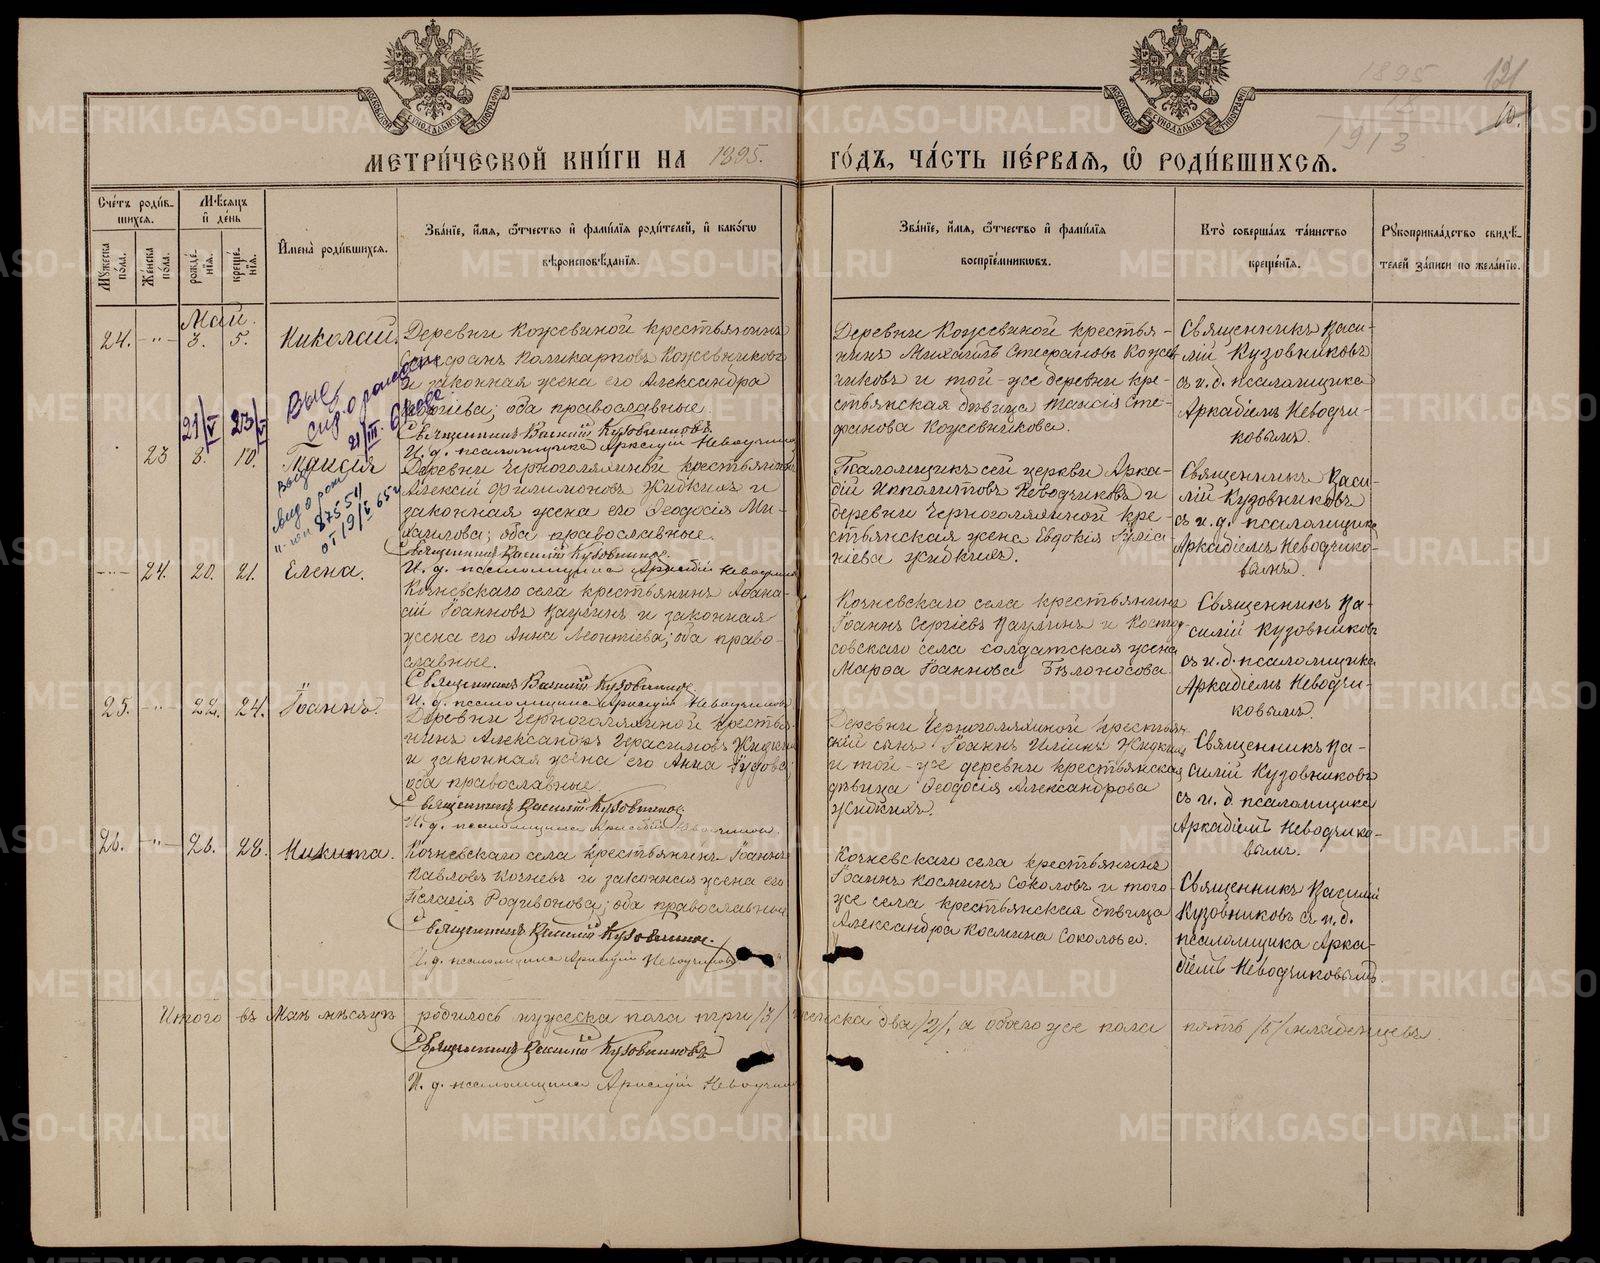 1895
121
10.
1913
МЕТРИ́ЧЕСКОЙ КНИ́ГИ НА 1895.
ГО́ДЪ, ЧА́СТЬ ПЕ́РВАЯ, Ѽ РОДИ́ВШИХСЯ.
Сче́тъ роди́в-
шихся.
Мꙋ́жеска по́ла.
Же́нска по́ла.
Мѣ́сяцъ и де́нь
рожде́-
нїя.
креще́-
нїя.
И́мена роди́вшихся.
Зва́нїе, и́мя, ѻ́тчество и фами́лїя роди́телей, и како́гѡ
вѣроисповѣ́данїя.
Зва́нїе, и́мя, ѻ́тчество и фами́лїя
воспрїе́мникѡвъ.
Кто̀ соверша́лъ та́инство
креще́нїя.
Рꙋкоприкла́дство свидѣ́-
телей за́писи по жела́нїю.
Май.
24. -"- 3. 5. Николай.
Деревни Кожевиной крестьянинъ
Стефанъ Поликарповъ Кожевниковъ
и законная жена его Александра
оба православные.
Священникъ Василій Кузовниковъ.
И. д. псаломщика Аркадій Неводчиковъ
Деревни Кожевиной крестья-
нинъ Михаилъ Стефановъ Кожев
никовъ и той-же деревни кре-
стьянская дѣвица Таисія Сте-
фанова Кожевникова.
Священникъ Васи-
лій Кузовниковъ
съ и. д. псаломщика
Аркадіемъ Неводчи-
ковымъ.
21/V 23/V
21/III.
23 8. 10. Таисія
87554
от 19/I 65г
Деревни Черноголяшной крестьянинъ
Алексій Филимоновъ Жидкихъ и
законная жена его Ѳеодосія Ми-
хаилова; оба православные.
Священникъ Василій Кузовниковъ.
И. д. псаломщика Аркадій Неводчиковъ
Псаломщикъ сей церкви Арка-
дій Ипполитовъ Неводчиковъ и
деревни Черноголяшной кре-
стьянская жена Евдокія Іуліа
ніева Жидкихъ.
Священникъ Васи-
лій Кузовниковъ
съ и. д. псаломщика
Аркадіемъ Неводчико-
вымъ.
24. 20. 21. Елена.
Кочневскаго села крестьянинъ Аѳана-
сій Іоанновъ Ваулинъ и законная
жена его Анна Леонтіева; оба право-
славные.
Священникъ Василій Кузовниковъ.
И. д. псаломщика Аркадій Неводчиковъ
Кочневскаго села крестьянинъ
Іоаннъ Сергіевъ Ваулинъ и
совскаго села солдатская жена
Марѳа Іоаннова Бѣлоносова.
Священникъ Ва-
силій Кузовниковъ
съ и. д. псаломщика
Аркадіемъ Неводчи-
ковымъ.
25. -"- 22. 24. Іоаннъ.
Деревни Черноголяшной крестья-
нинъ Александръ Герасимовъ Жидкихъ
и законная жена его Анна
оба православные.
Священникъ Василій Кузовниковъ.
И. д. псаломщика Аркадій Неводчиковъ.
Деревни Черноголяшной крестьян-
скій сынъ Іоаннъ Иліинъ Жидкихъ
и той-же деревни крестьянская
дѣвица Ѳеодосія Александрова
Жидкихъ.
Священникъ Ва-
силій Кузовниковъ
съ и. д. псаломщика
Аркадіемъ Неводчико-
вымъ.
26. -"- 26. 28. Никита.
Кочневскаго села крестьянинъ Іоаннъ
Павловъ Кочневъ и законная жена его
Пелагія Родивонова; оба православные
Священникъ Василій Кузовниковъ.
И. д. псаломщика Аркадій Неводчиковъ
Кочневскаго села крестьянинъ
Іоаннъ Косминъ Соколовъ и того-
же села крестьянская дѣвица
Александра Космина Соколова.
Священникъ Василій
Кузовниковъ съ и. д.
псаломщика Арка-
діемъ Неводчиковымъ.
Итого въ Маѣ мѣсяцѣ родилось мужеска пола три /3/ женска два /2/, а обоего же пола пять /5/ младенцевъ.
Священникъ Василій Кузовниковъ
И. д. псаломщика Аркадій Неводчиковъ
METRIKI.GASO-URAL.RU